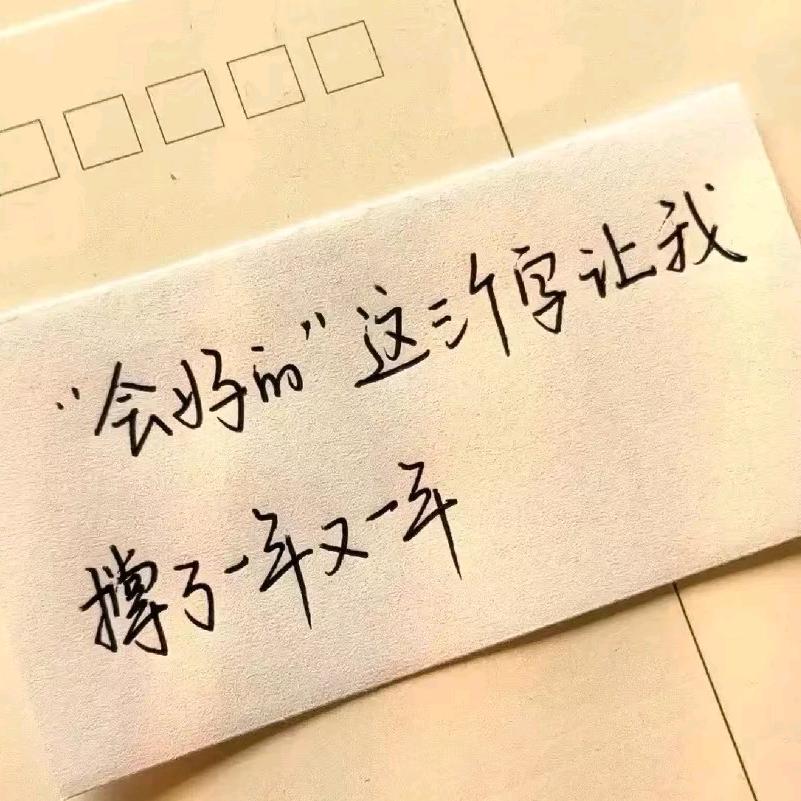 “会好的”这三个字让我
撑了一年又一年